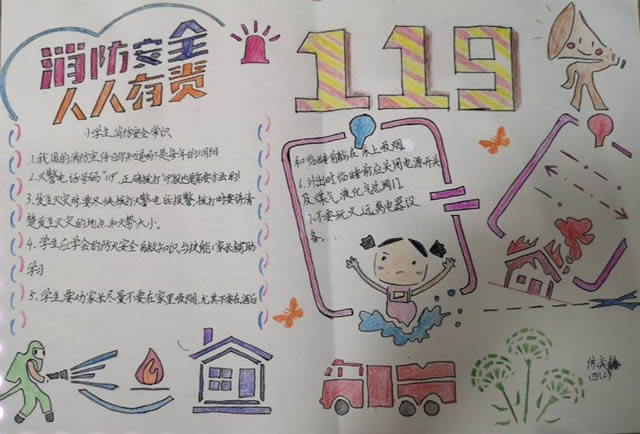 消防安全
人人有责
119
小学生消防安全常识
1.我国的消防宣传日你知道吗?是每年的11月9日
2.火警电话号码"119",正确拨打119报也要方法的!
3.发生火灾时要尽快拨打火警电话报警,拨打时要讲清
楚发生火灾的地点和火势大小。
4.学生应学会的防火安全自救知识与技能(家长辅助
学习
5.学生要劝家长尽量不要在家里吸烟,尤其不要在酒后
和临睡前躺在床上吸烟
6.外出时临睡前应关闭电源开关
及煤气液化气阀门
7.不要玩火远离电器设
备。
四(2)